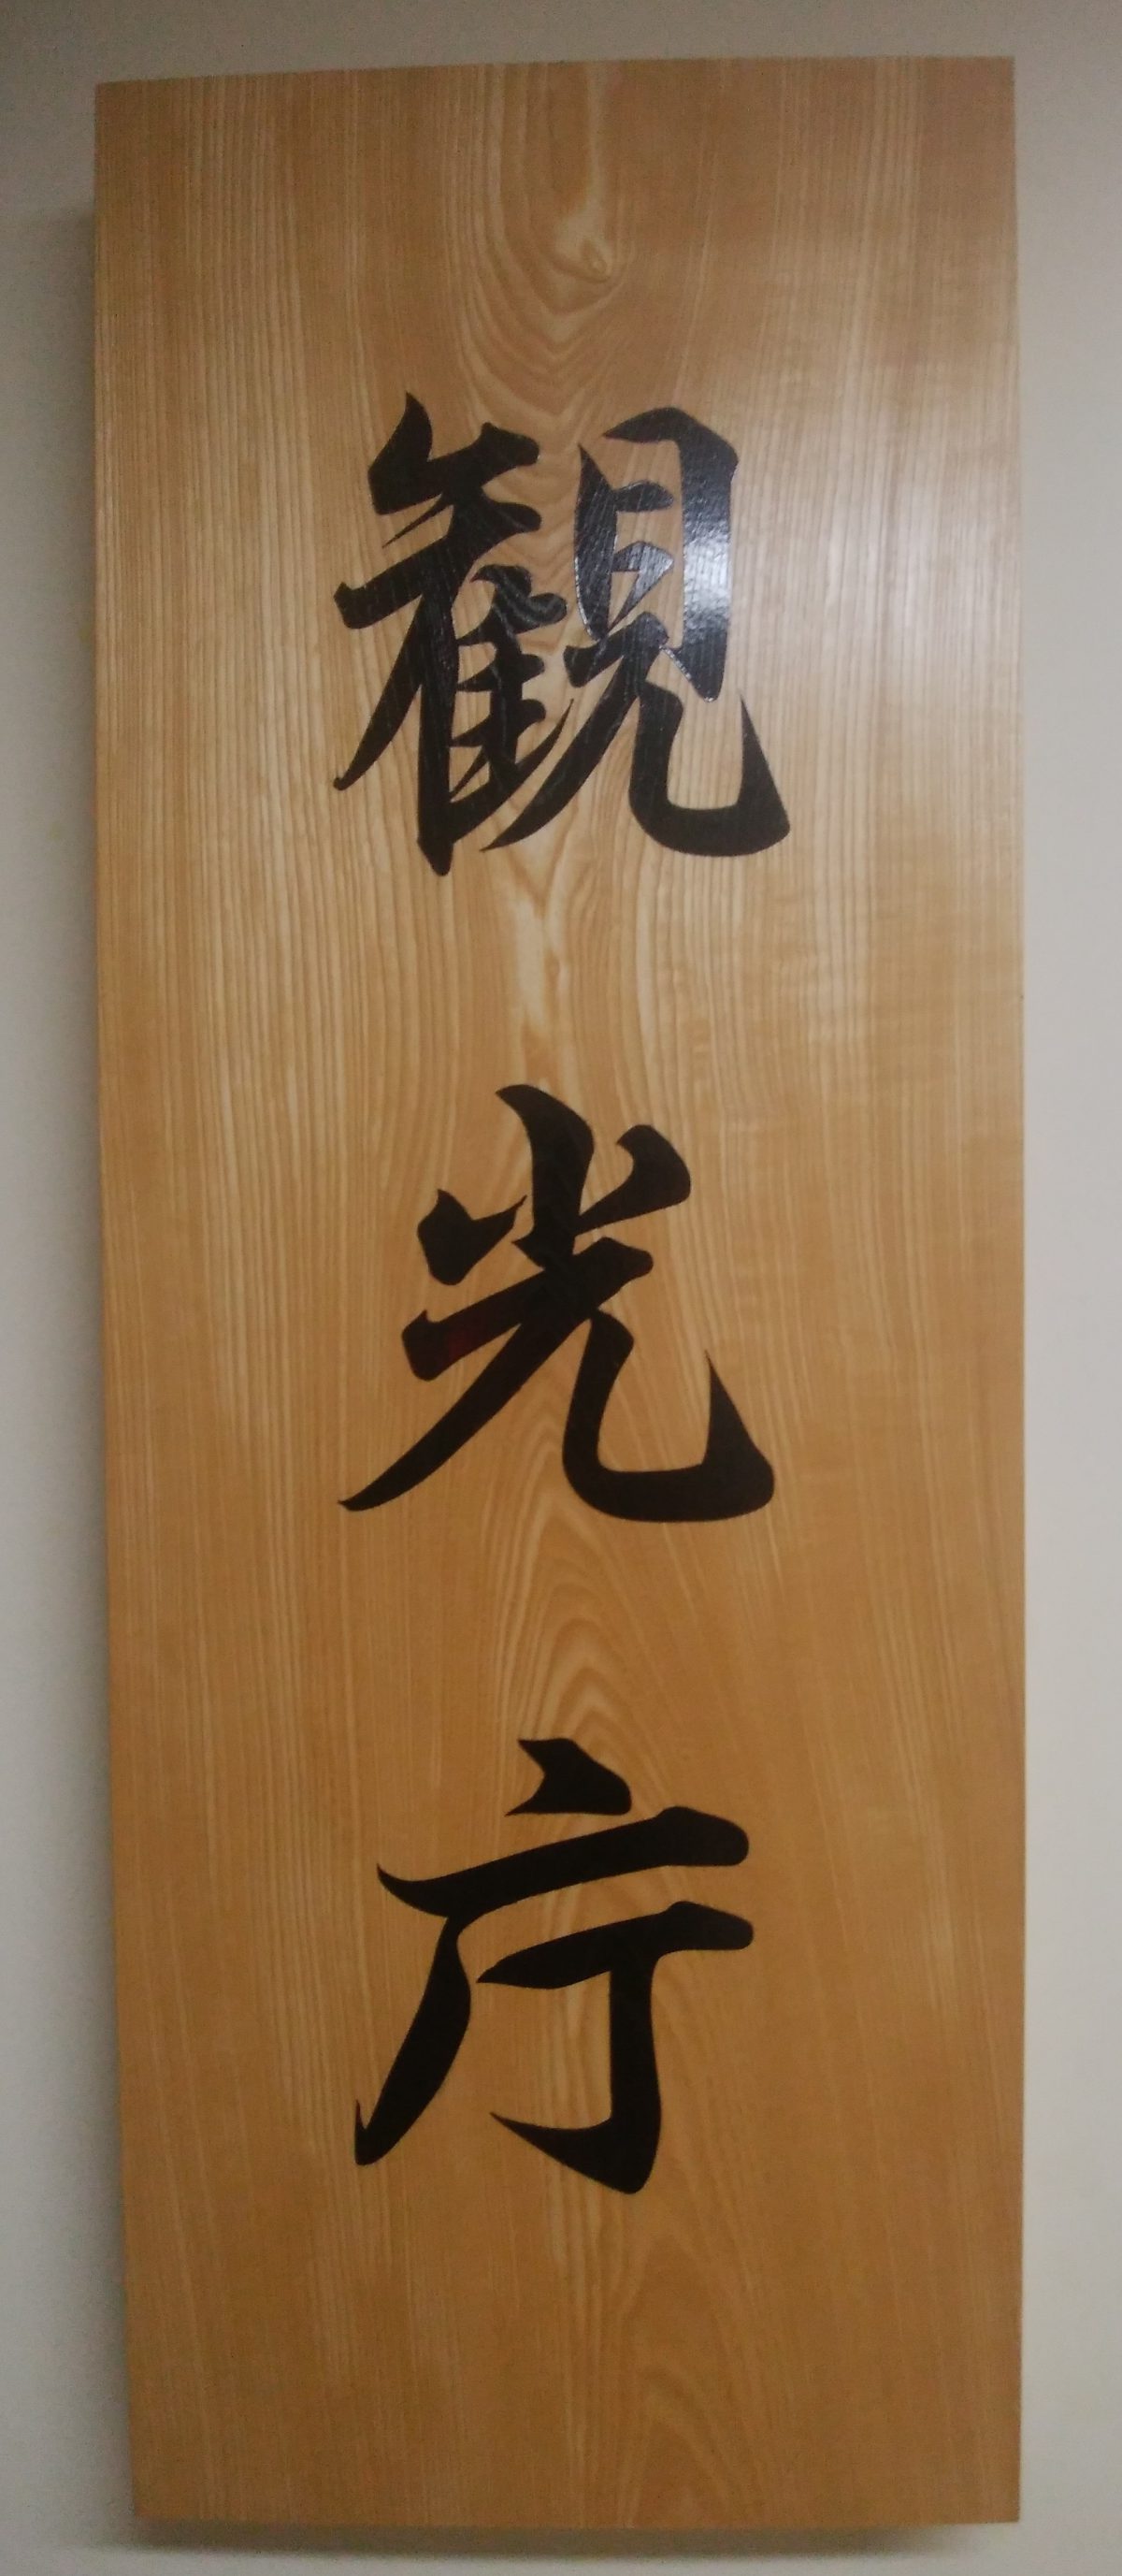 観光庁